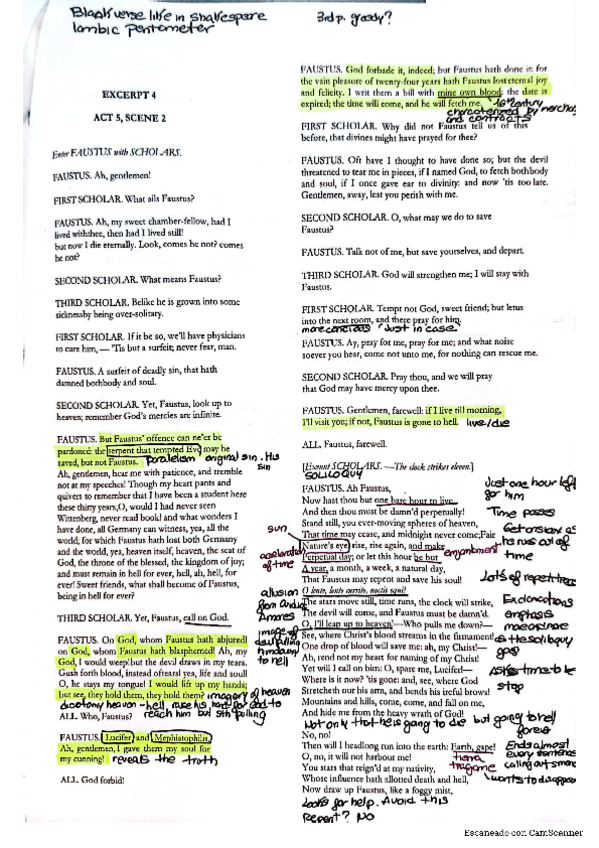 Blankverse like in Shakespeare
Iambic Pentameter
EXCERPT 4
ACT 5, SCENE 2
Enter FAUSTUS with SCHOLARS.
FAUSTUS. Ah, gentlemen!
FIRST SCHOLAR. What ails Faustus?
FAUSTUS. Ah, my sweet chamber-fellow, had I
lived withthee, then had I lived still!
but now I die eternally. Look, comes he not? comes
he not?
SECOND SCHOLAR. What means Faustus?
THIRD SCHOLAR. Belike he is grown into some
sicknessby being over-solitary.
FIRST SCHOLAR. If it be so, we'll have physicians
to cure him, — 'Tis but a surfeit; never fear, man.
FAUSTUS. A surfeit of deadly sin, that hath
damned bothbody and soul.
SECOND SCHOLAR. Yet, Faustus, look up to
heaven; remember God's mercies are infinite.
FAUSTUS. But Faustus' offence can ne'er be
pardoned: the serpent that tempted Eve may be
saved, but not Faustus. Paralelism original sin. His
sin
Ah, gentlemen, hear me with patience, and tremble
not at my speeches! Though my heart pants and
quivers to remember that I have been a student here
these thirty years,O, would I had never seen
Wittenberg, never read book! and what wonders I
have done, all Germany can witness, yea, all the
world; for which Faustus hath lost both Germany
and the world, yea, heaven itself, heaven, the seat of
God, the throne of the blessed, the kingdom of joy;
and must remain in hell for ever, hell, ah, hell, for
ever! Sweet friends, what shall become of Faustus,
being in hell for ever?
THIRD SCHOLAR. Yet, Faustus, call on God.
FAUSTUS. On God, whom Faustus hath abjured!
on God, whom Faustus hath blasphemed! Ah, my
God, I would weep!but the devil draws in my tears.
Gush forth blood, instead oftears! yea, life and soul!
O, he stays my tongue! I would lift up my hands;
but see, they hold them, they hold them! imagery of heaven
dicotomy heaven - hell, raise his hand for god to
ALL. Who, Faustus? reach him but still pulling
FAUSTUS. Lucifer and Mephistophilis.
Ah, gentlemen, I gave them my soul for
my cunning! reveals the truth
ALL. God forbid!
3rd p. greedy?
FAUSTUS. God forbade it, indeed; but Faustus hath done it: for
the vain pleasure of twenty-four years hath Faustus lost eternal joy
and felicity. I writ them a bill with mine own blood: the date is
expired; the time will come, and he will fetch me. 16th century
characterized by merchas
and contracts
FIRST SCHOLAR. Why did not Faustus tell us of this
before, that divines might have prayed for thee?
FAUSTUS. Oft have I thought to have done so; but the devil
threatened to tear me in pieces, if I named God, to fetch bothbody
and soul, if I once gave ear to divinity: and now 'tis too late.
Gentlemen, away, lest you perish with me.
SECOND SCHOLAR. O, what may we do to save
Faustus?
FAUSTUS. Talk not of me, but save yourselves, and depart.
THIRD SCHOLAR. God will strengthen me; I will stay with
Faustus.
FIRST SCHOLAR. Tempt not God, sweet friend; but letus
into the next room, and there pray for him.
more conscious 'just in case
FAUSTUS. Ay, pray for me, pray for me; and what noise
soever you hear, come not unto me, for nothing can rescue me.
SECOND SCHOLAR. Pray thou, and we will pray
that God may have mercy upon thee.
FAUSTUS. Gentlemen, farewell: if I live till morning,
I'll visit you; if not, Faustus is gone to hell. live/die
ALL. Faustus, farewell.
[Exeunt SCHOLARS. —The clock strikes eleven.]
SOLILOQUY
FAUSTUS. Ah Faustus, Just one hour left
Now hast thou but one bare hour to live, for him
And then thou must be damn'd perpetually!
Stand still, you ever-moving spheres of heaven, Time passes
That time may cease, and midnight never come;Fair
sun
Nature's eye rise, rise again, and make
acceleration
of time
Perpetual day; or let this hour be but enjambment time
A year, a month, a week, a natural day,
That Faustus may repent and save his soul! Lots of repetition
O lente, lente currite, noctis equi!
allusion
from Ovid
Amores
The stars move still, time runs, the clock will strike,
The devil will come, and Faustus must be damn'd. emphasis
O, I'll leap up to heaven'—Who pulls me down?—
image of
devil pulling
him down
to hell
See, where Christ's blood streams in the firmament! as the soliloquy
One drop of blood will save me: ah, my Christ!— goes
Ah, rend not my heart for naming of my Christ!
Yet will I call on him: O, spare me, Lucifer!— Asks time to be
Where is it now? 'tis gone: and, see, where God stop
Stretcheth our his arm, and bends his ireful brows!
Mountains and hills, come, come, and fall on me,
And hide me from the heavy wrath of God!
Not only that he is going to die but going to hell
forever
No, no!
Then will I headlong run into the earth: Earth, gape! Ends almost
O, no, it will not harbour me! every sentence
You stars that reign'd at my nativity,
Whose influence hath allotted death and hell, wants to disappear
Now draw up Faustus, like a foggy mist,
Looks for help. Avoid this
Repent? NO
Escaneado con CamScanner